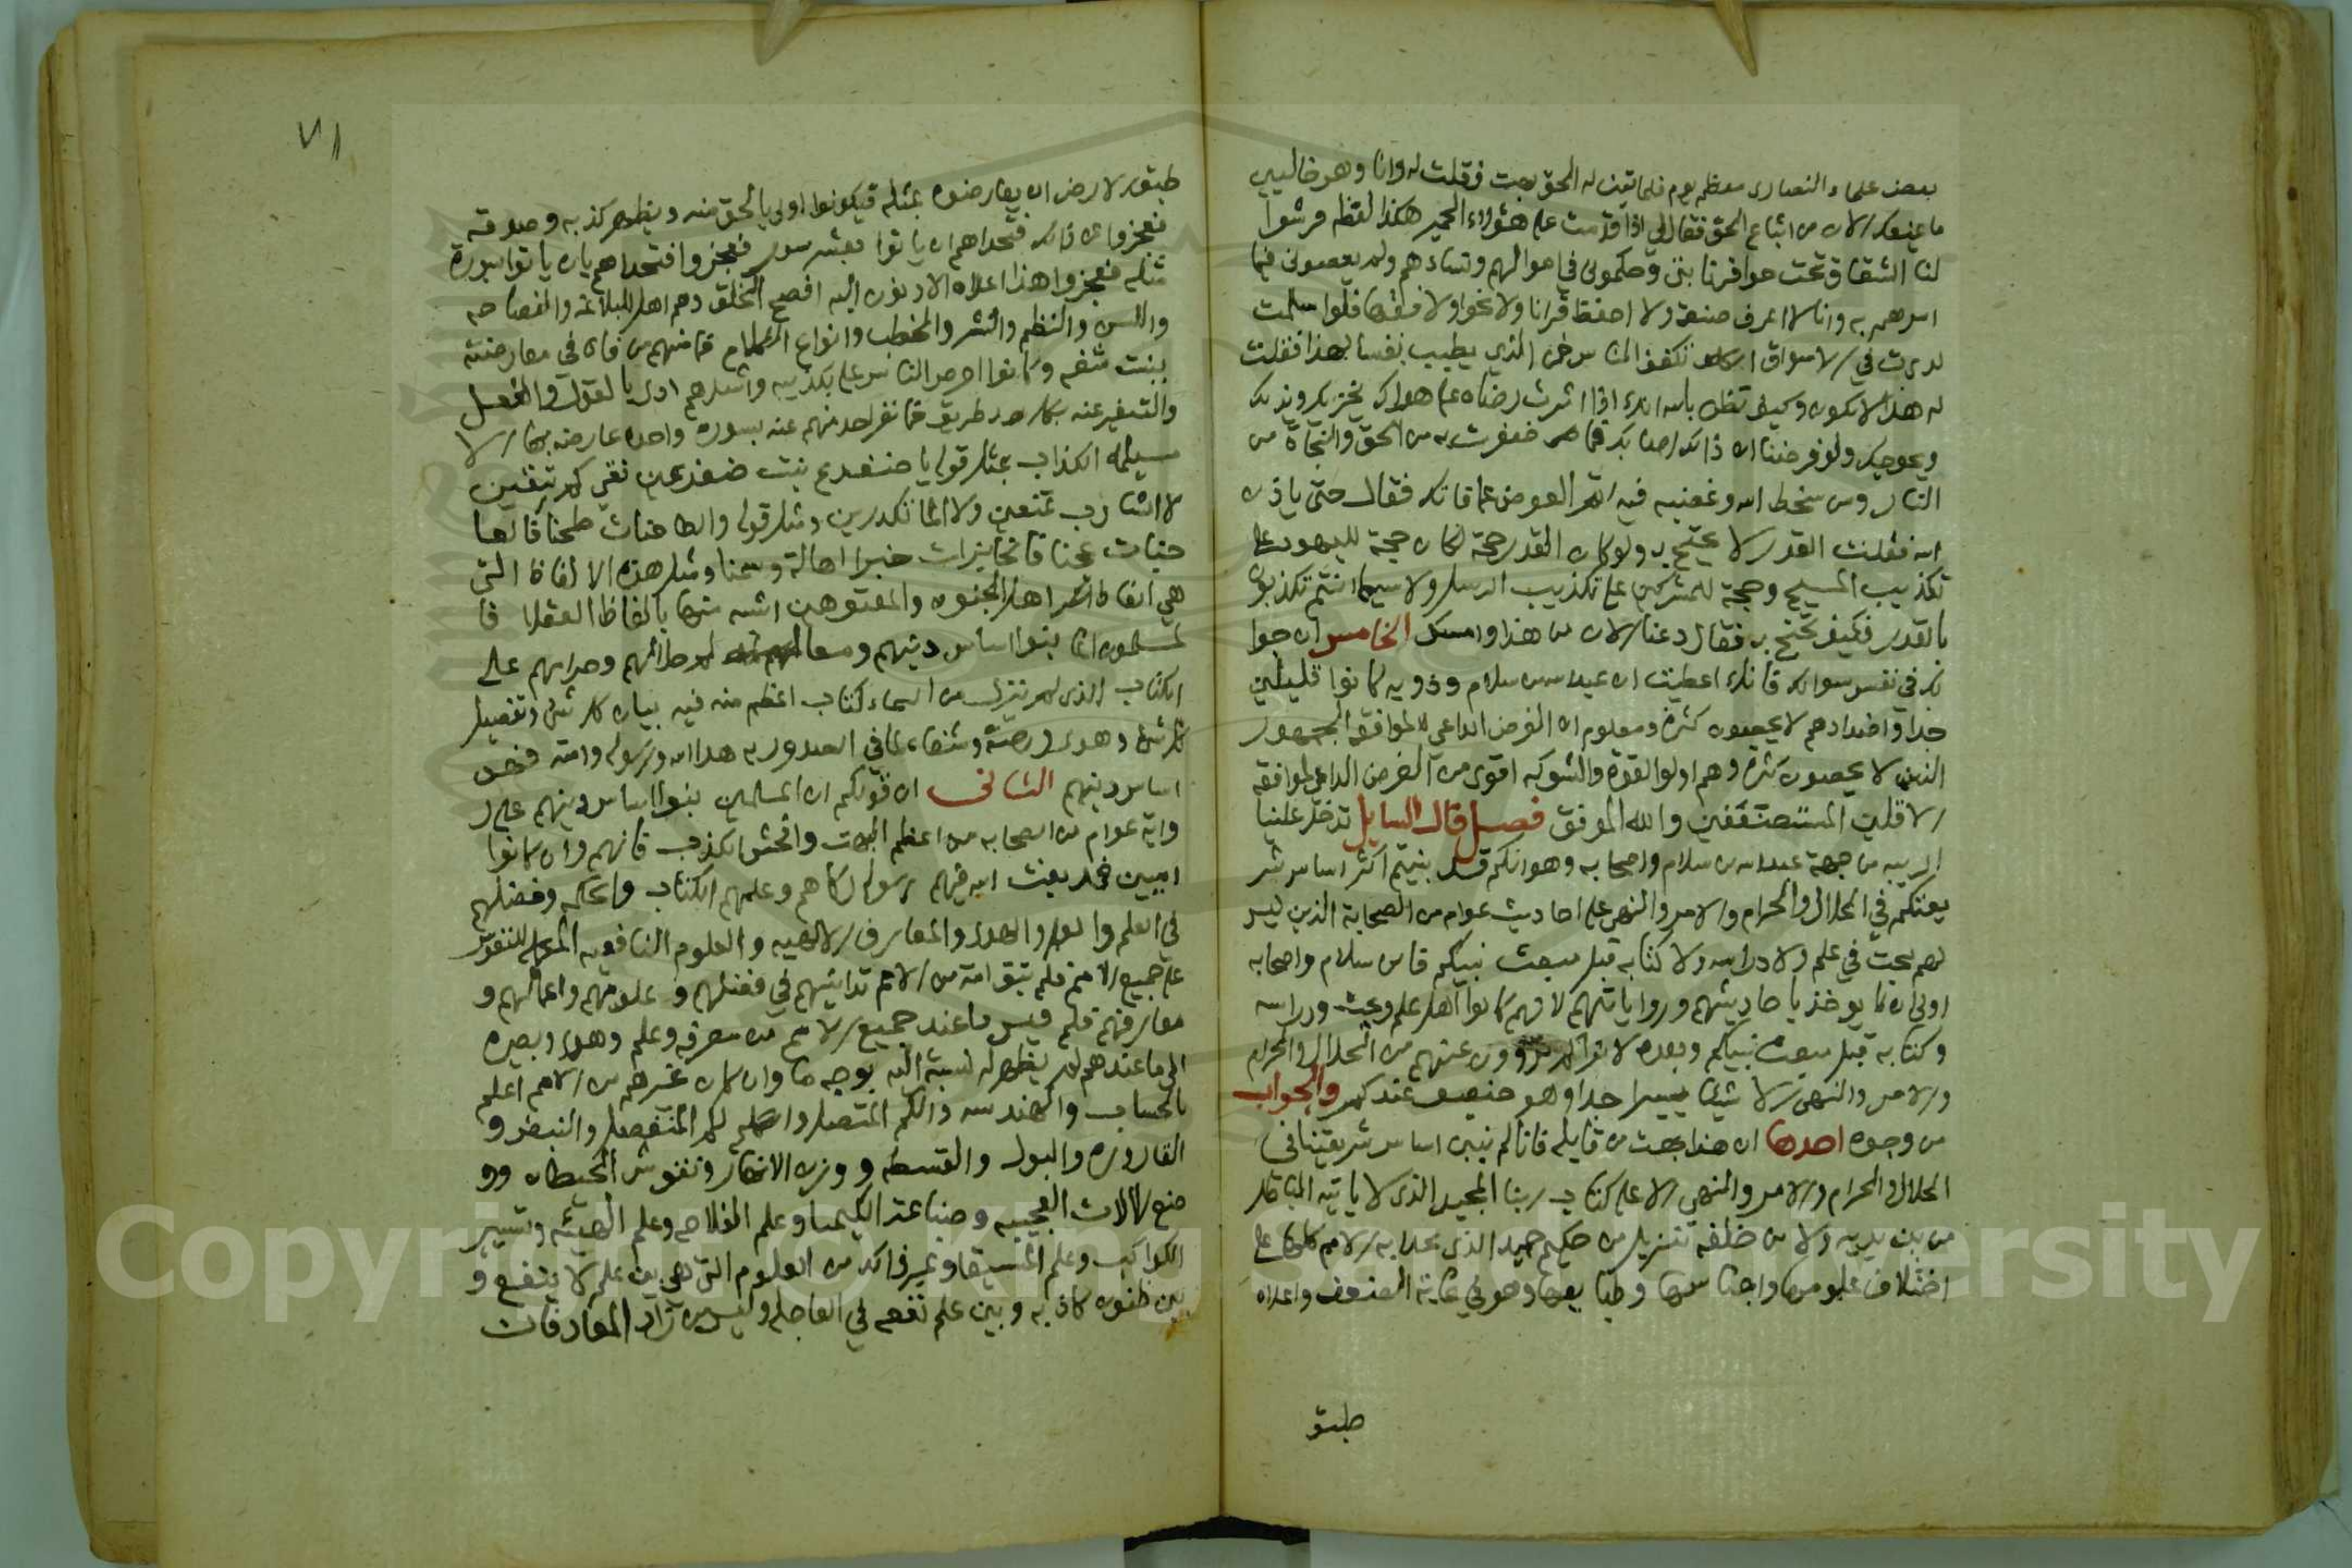 بعض علماء النصارى معظم يوم فلما تبين له الحق بهت فقلت له وانا وهو خاليين
ما يمنعك الان من اتباع الحق فقال لي اذا قدمت على هؤلاء الحمير هكذا لفظه فرشوا
لنا الشقاق تحت حوافر دابتي وحكموني في اموالهم ونساءهم ولم يعصوني فيما
امرهم به وانا لا اعرف صنعة ولا احفظ قرانا ولا نحوا ولا فقها فلو اسلمت
لدرت في الاسواق اتكفف الناس فمن الذي يطيب نفسا بهذا فقلت
له هذا لا يكون وكيف تظن بالله انك اذا اثرت رضاه على هواك يخزيك ويذلك
ويحوجك ولو فرضنا ان ذلك اصابك فما ظفرت به من الحق والنجاة من
النار ومن سخط الله وغضبه فيه اتم العوض عما فاتك فقال حتى ياذن
الله فقلت القدر لا يحتج به ولو كان القدر حجة لكان حجة لليهود على
تكذيب المسيح وحجة للمشركين على تكذيب الرسل ولا سيما انتم تكذبون
بالقدر فكيف تحتج به فقال دعنا الان من هذا وامسك الخامس ان جوا
بك في نفس سوالك فانك اعطيت ان عبدالله بن سلام وذويه كانوا قليلين
جدا واضدادهم لا يحصون كثرة ومعلوم ان الغرض الداعي لموافقة الجمهور
الذين لا يحصون كثرة وهم اولوا القوة والشوكه اقوى من الغرض الداعي لموافقة
الاقلين المستضعفين والله الموفق فصل قال السايل تدخل علينا
الريبه من جهة عبدالله بن سلام واصحابه وهو انكم قد بنيتم اكثر اساس شر
يعتكم في الحلال والحرام والامر والنهي على احاديث عوام من الصحابة الذين ليس
لهم بحث في علم ولا دراسه ولا كتابه قبل مبعث نبيكم فابن سلام واصحابه
اولى ان يوخذ باحاديثهم ورواياتهم لانهم كانوا اهل علم وبحث ودراسه
وكتابه قبل مبعث نبيكم وبعده لا نراكم تروون عنهم من الحلال والحرام
والامر والنهي الا شيئا يسيرا جدا وهو ضعيف عندكم والجواب
من وجوه احدها ان هذا بهت من قايله فانا لم نبن اساس شريعتنا في
الحلال والحرام والامر والنهي الا على كتاب ربنا المجيد الذي لا ياتيه الباطل
من بين يديه ولا من خلفه تنزيل من حكيم حميد الذي تحدا به الامم كلها على
اختلاف علومها واجناسها وطبايعها وهو في غاية الضعف واعداه
طبق
٧١
طبق الارض ان يعارضوه بمثله فيكونوا اولى بالحق منه ويظهر كذبه وصدقه
فعجزوا عن ذلك فتحداهم ان ياتوا بعشر سور فعجزوا فتحداهم بان ياتوا بسورة
مثله فعجزوا هذا واعداه الادنون اليه افصح الخلق وهم اهل البلاغة والفصاحه
واللسن والنظم والنثر والخطب وانواع الكلام فما منهم من فاه في معارضته
ببنت شفه وكانوا احرص الناس على تكذيبه واشدهم اذى بالقول والفعل
والتنفير عنه بكل طريق فما نقل احد منهم عنه بسورة واحده عارضه بها الا
مسيلمه الكذاب بمثل قوله يا ضفدع بنت ضفدعين نقي كم تنقين
لا الشارب تمنعين ولا الماء تكدرين ومثل قوله والطاحنات طحنا فالعا
جنات عجنا فالخابزات خبزا اهالة وسمنا ومثل هذه الالفاظ التي
هي الفاظ اهل الجنون والمعتوهين اشبه منها بالفاظ العقلا فا
لمسلمون انما بنوا اساس دينهم ومعالم حلالهم وحرامهم على
الكتاب الذي لم ينزل من السماء كتاب اعظم منه فيه بيان كل شي وتفصيل
كل شي وهدى ورحمة وشفاء لما في الصدور به هدا الله رسوله وامته فهو
اساس دينهم الثاني ان قولكم ان المسلمين بنوا اساس دينهم على ر
واية عوام من الصحابه من اعظم البهت وافحش الكذب فانهم وان كانوا
اميين فمذ بعث الله فيهم رسوله زكاهم وعلمهم الكتاب والحكمه وفضلهم
في العلم والعمل والهدى والمعارف الالهيه والعلوم النافعه المكمله للنفوس
على جميع الامم فلم تبق امة من الامم تدانيهم في فضلهم وعلومهم واعمالهم و
معارفهم فلو قيس ما عند جميع الامم من معرفه وعلم وهدى وبصيره
الى ما عندهم لم يظهر له نسبة اليه بوجه ما وان كان غيرهم من الامم اعلم
بالحساب والهندسه والكم المتصل والكم المنفصل والنبض و
القاروره والبول والقسطه ووزن الانهار ونقوش الحيطان وو
ضع الالات العجيبه وصناعة الكيميا وعلم الفلاحه وعلم الهيئه وتسيير
الكواكب وعلم الموسيقا وغير ذلك من العلوم التي هي بين علم لا ينفع و
بين ظنون كاذبه وبين علم نفعه في العاجله وليس من زاد المعاد فان
Copyright © King Saud University